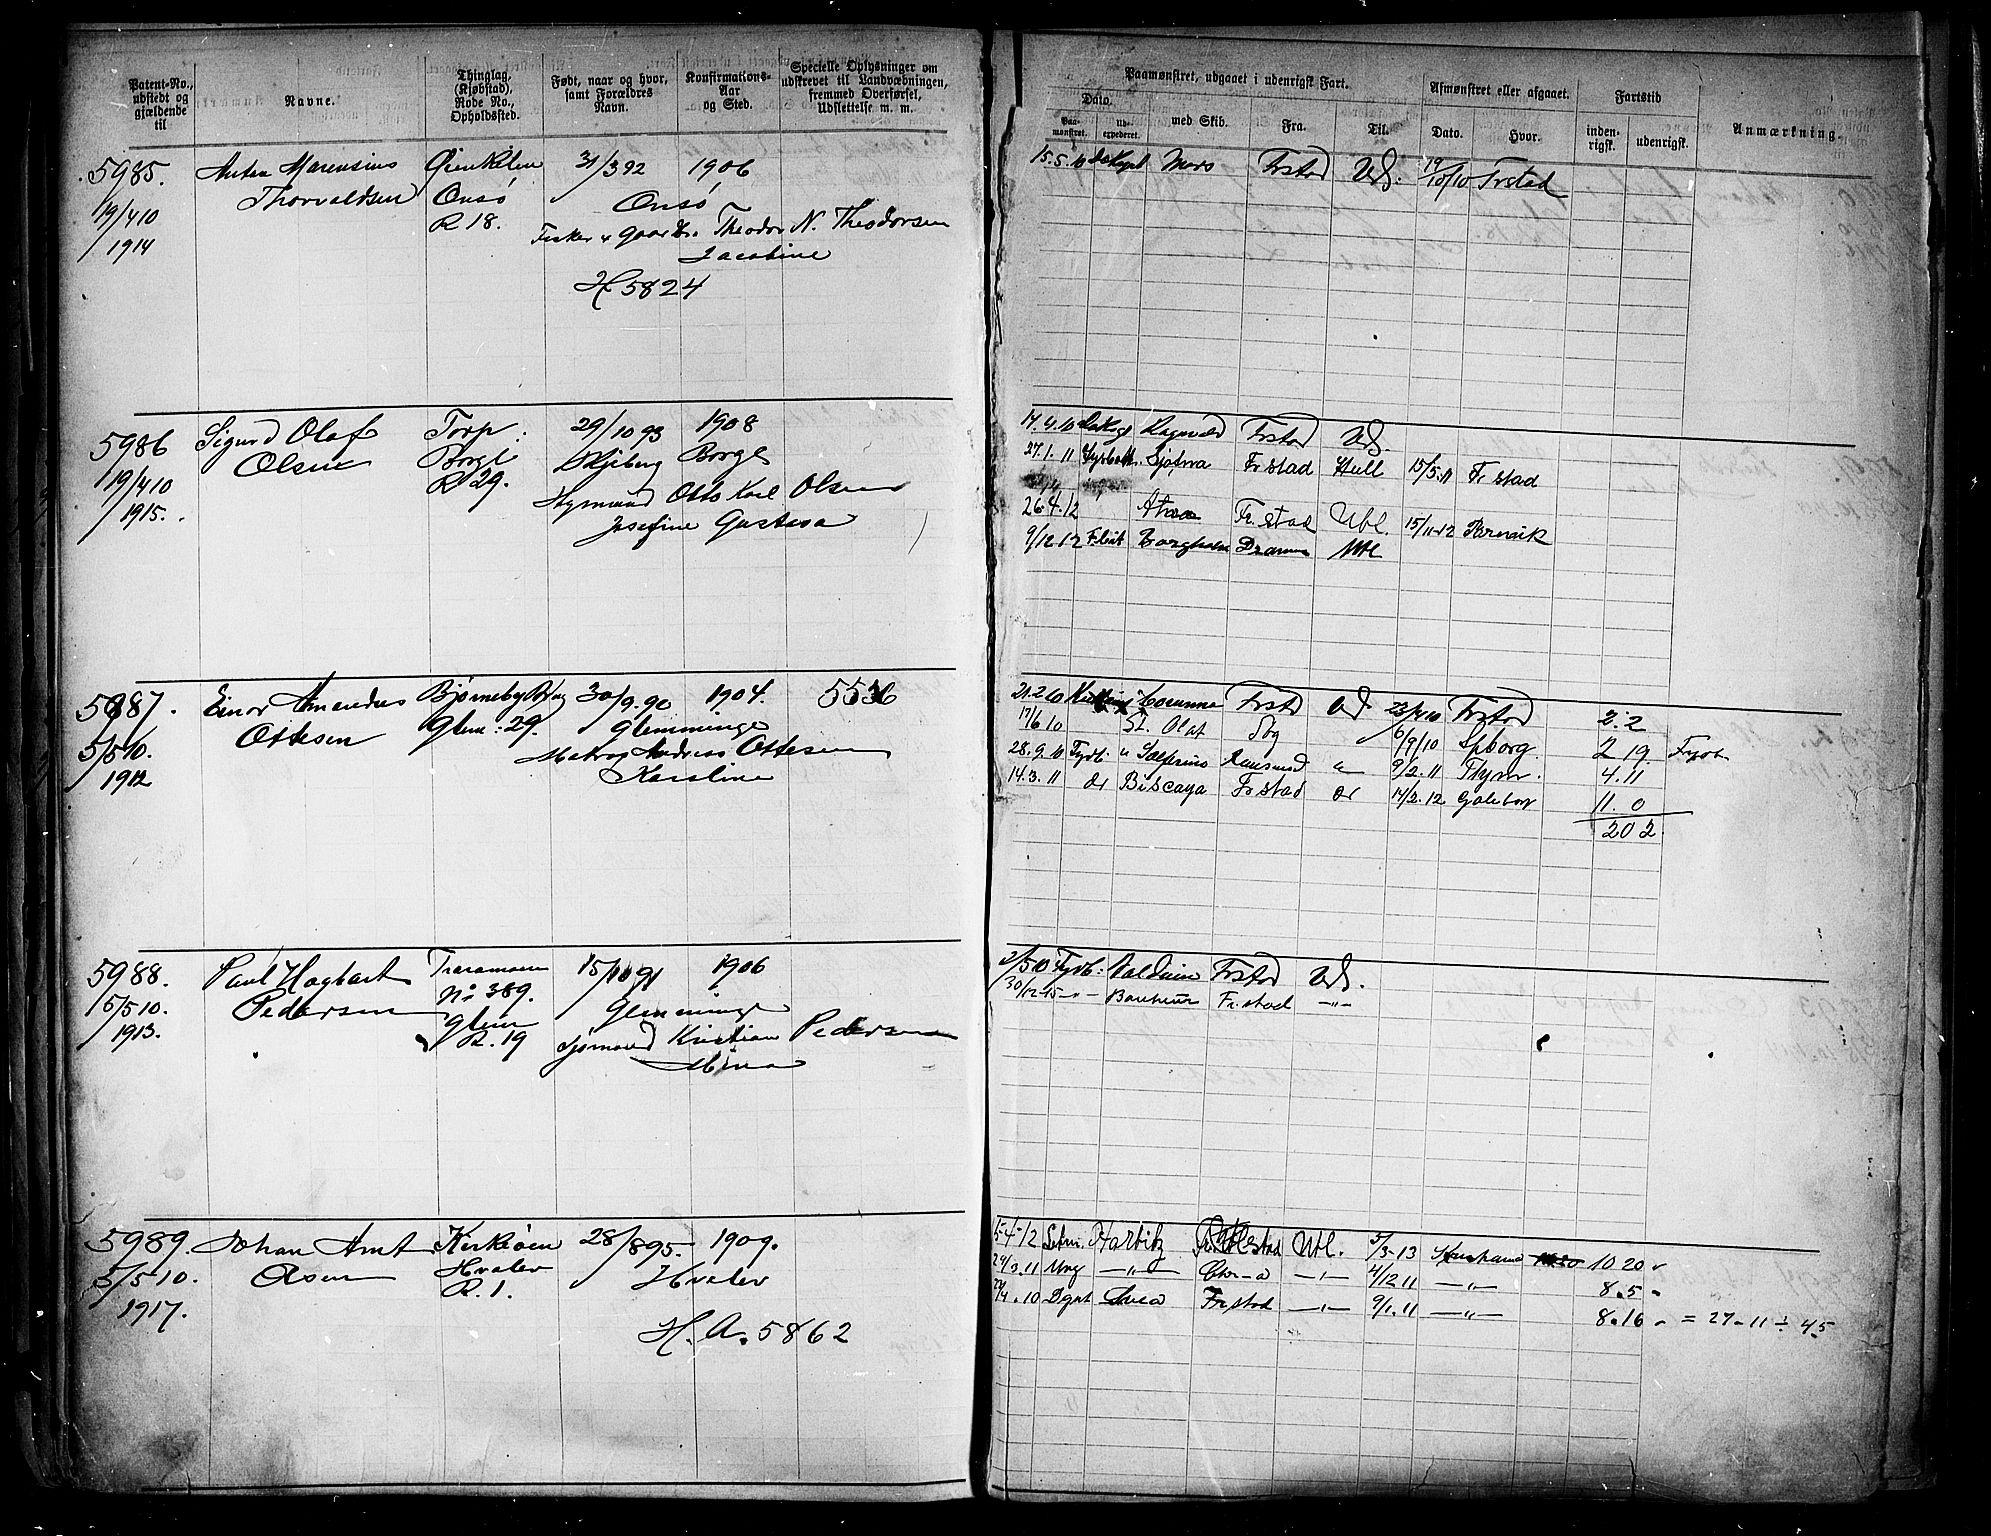 Patent-No., udstedt og gjældende til
Navne.
Thinglag, (Kjøbstad), Rode No., Opholdssted.
Født, naar og hvor, samt Forældres Navn.
Konfirmations- Aar og Sted.
Specielle Oplysninger om udskrevet til Landvæbningen, fremmed Overførsel, Udslettelse m. m.
Paamønstret, udgaaet i udenrigsk Fart.
Dato.
Paa- mønstret.
Ud- expederet.
med Skib.
Fra.
Til.
Afmønstret eller afgaaet.
Dato.
Hvor.
Fartstid
inden- rigsk.
udenrigsk.
Anmærkning.
5985. Anton Marensius Øienkilen 31/3 92 1906
19/4 10 Thorvaldsen Onsö Onsö
1914 R 18. Fisker & Theodor N. Theodorsen
Jacobine
H 5824
15.5.10 Mars Frstad Udl. 19/10/10 Frstad
5986 Sigurd Olaf Torp 29/10 93 1908
19/4 10 Olsen Borge Skjeberg Borge
1915. R 29. Styrmand Otto Karl Olsen
Josefine Gustava
17.4.10 Ragnvald Frstad Udl.
27.1.11 Frstad Hull 15/5.11 Fr stad
26.4.12 Fr. stad Utl. 15/11.12
9/12.12 Borgholm Dramm Utl
5987. Einar Amandus Bjørneby 30/9.90 1904. 5536
5/5 10. Ottesen Glem: 29. Glemminge
1912 Matros Andreas Ottesen
Karoline
21.2.10 Corunna Frstd Ud 23/4 10 Frstad 2.2
17/6 10 St. Olaf Sbg " 6/9/10 Spborg. 2 19. Fyrb.
28.9.10 Fyrb. " 9/2.11 4.11
14.3.11 Biscaya Frstad 14/2.12 Goteborg 11.0
20 2
5988. Paul Hagbart Traramoen 15/10 91 1906
5/5 10. Pedersen No 389. Glemminge
1913. Glem R. 19 Sjømand Kristian Pedersen
Mina
2/5 10 Fyrb. Frstad Udl.
30/12-15 -"- Fr.stad -"-
5989. Johan Arnt Kirkeöen 28/8 95. 1909.
5/5 10. Hvaler Hvaler
1917. R. 1.
H. A. 5862
15-4-12 Utl. 5/3-13 10 20
24/3.11 Ung -"- -"- 4/12 11 -"- 8.5
24/4.10 Svea Frstad -"- 9/1.11 -"- 8.16 = 27-11 ÷ 45